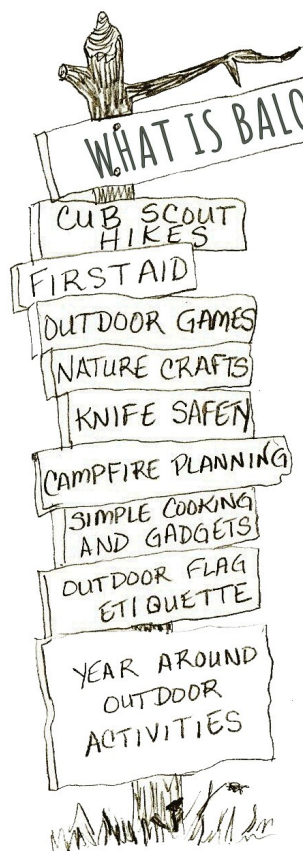 WHAT IS BALO
CUB SCOUT
HIKES
FIRST AID
OUTDOOR GAMES
NATURE CRAFTS
KNIFE SAFETY
CAMPFIRE PLANNING
SIMPLE COOKING
AND GADGETS
OUTDOOR FLAG
ETIQUETTE
YEAR AROUND
OUTDOOR
ACTIVITIES